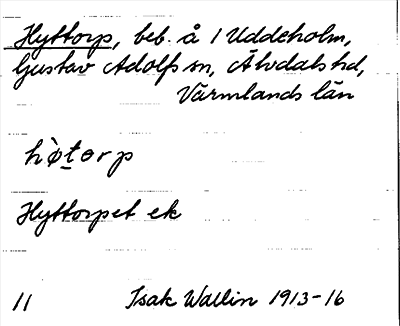 Hyttorp, beb. å 1 Uddeholm,
Gustav Adolfs sn, Älvdals hd,
Värmlands län
hø̀t̲orp
Hyttorpet ek
11 Isak Wallin 1913-16